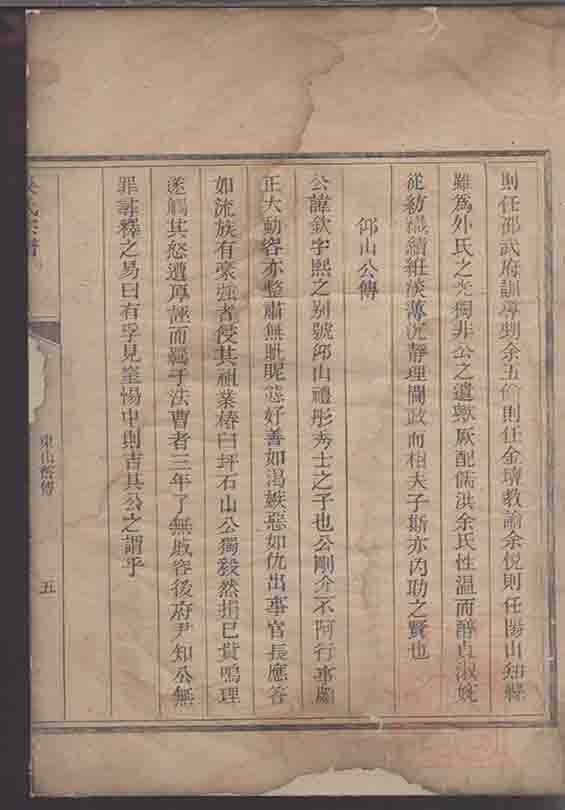 則任邵武府訓導剩余五倫則任金壇教諭余悅則任陽山知縣
雖爲外氏之光獨非公之遺獻厥配儒洪余氏性溫而醇貞淑婉
從紡織績紝淡薄沉靜理閫政而相夫子斯亦內助之賢也
邱山公傳
公諱欽字熙之别號邱山禮彤秀士之子也公剛介不阿行事顧
正大動容亦整肅無戲昵態好善如渴嫉惡如仇出事官長應答
如流族有豪强者侵其祖業椿臼坪石山公獨毅然捐己貲鳴理
遂觸其怒遭厚誣而羈于法曹者三年了無戚容後府尹知公無
罪尋釋之易曰有孚見窒惕中則吉其公之謂乎
氏宗譜
東山舊傳
五